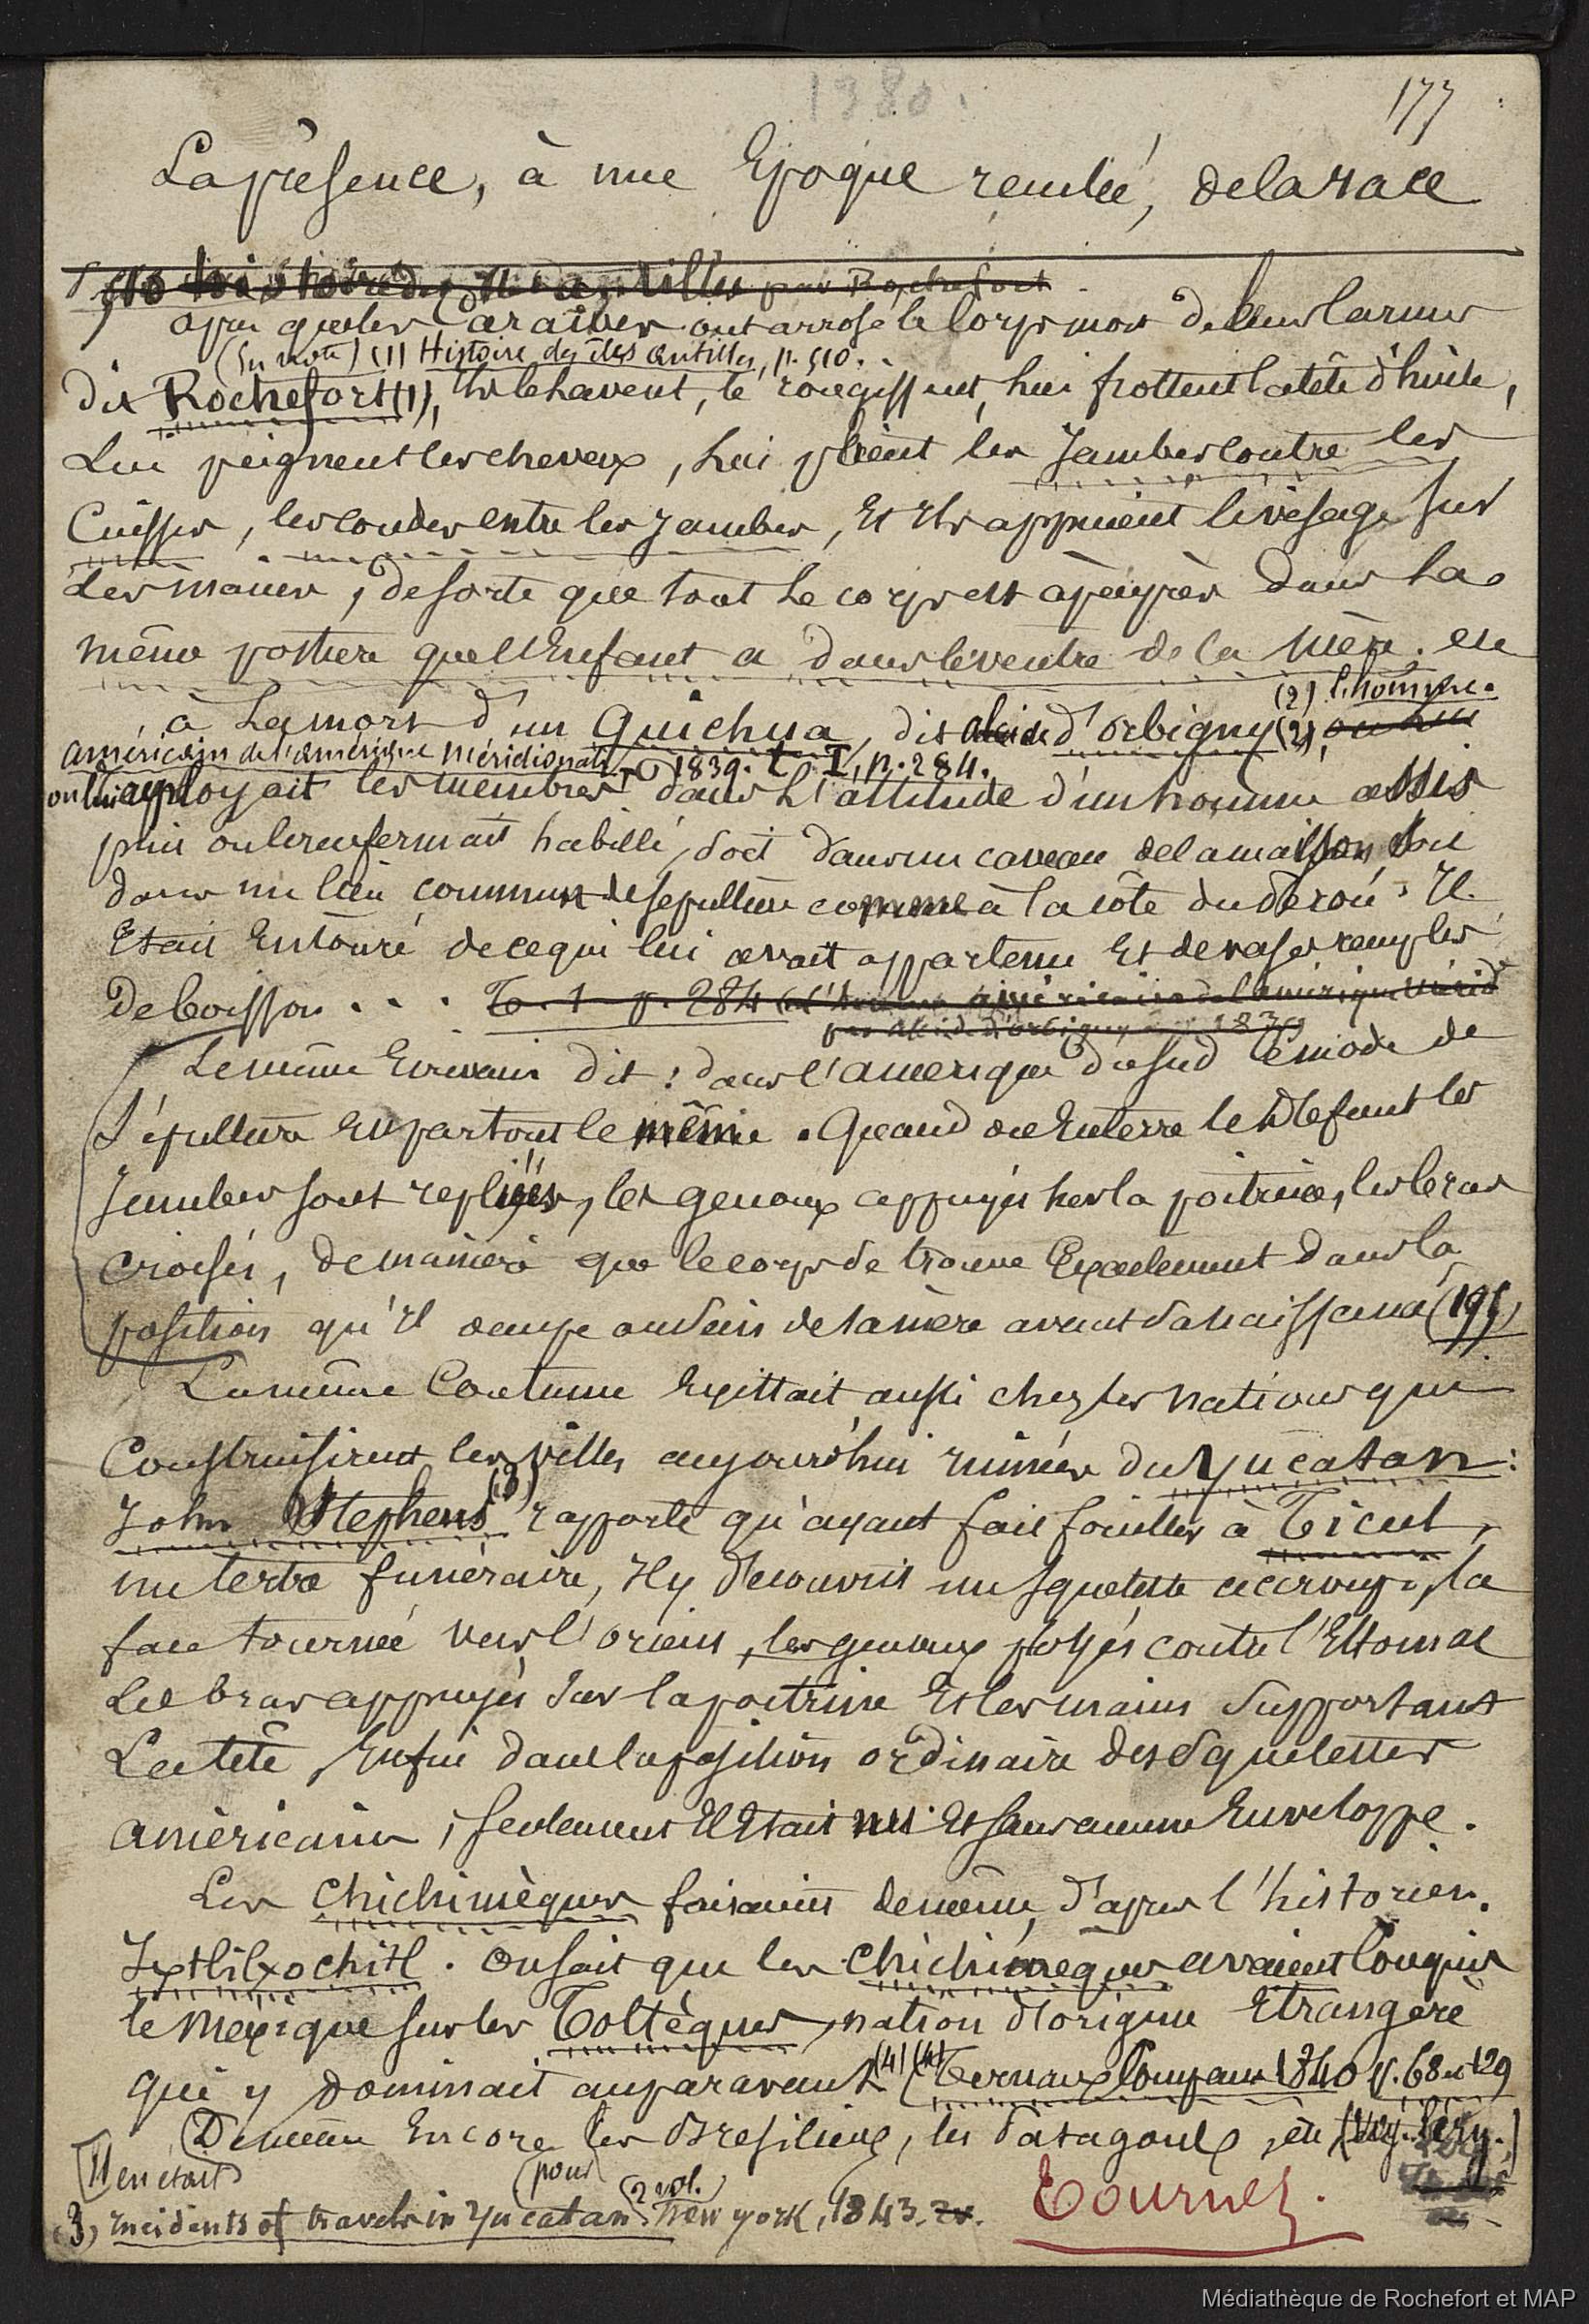 1380.
177
La présence, à une Epoque reculée, de la race
510 histoire des Iles antilles par Rochefort
apres que les Caraïbes ont arrosé le corps mort de leurs larmes
(En note) (1) Histoire des îles antilles, p. 510.
dit Rochefort (1), Ils le lavent, le rougissent, lui frottent la tête d'huile,
Lui peignent les cheveux, lui plient les Jambes contre les
Cuisses, les coudes entre les Jambes, Et Ils appuient le visage sur
Les mains, de sorte que tout le corps est àpeuprès dans la
même posture que l'Enfant a dans le ventre de la Mère. etc
(2) L'homme
à La mort d'un Quichua, dit alcide d'orbigny (2), on lui
américain de l'amérique Méridionale 1839. t. I, p. 284.
on lui ployait les membres dans L'attitude d'un homme assis
puis on le renfermait habillé, soit dans un caveau de la maison, soit
dans un lieu commun de sépulture comme à la côte du Pérou. Il
Etait Entouré de ce qui lui avait appartenu Et de vases remplis
de boisson . . . T. 1 p. 284 (l'homme américain de l'amérique Mérid
par alcide d'orbigny 1839
Le même Ecrivain dit : dans l'amerique du sud le mode de
Sépulture Est partout le même. Quand on Enterre le Défunt les
Jambes sont repliées, les genoux appuyés sur la poitrine, les bras
croisés, de manière que le corps se trouve Exactement dans la
position qu'Il occupe au sein de sa mère avant sa naissance (195)
La même Coutume Existait aussi chez les nations qui
Construisirent les villes aujourd'hui ruinées du Yucatan :
John Stephens (3) rapporte qu'ayant fait fouiller à Ticul,
un tertre funéraire, Il y Découvrit un squelette accroupi, la
face tournée vers l'orient, les genoux ployés contre l'Estomac
Les bras appuyés sur la poitrine Et les mains Supportant
La tête, Enfin dans la position ordinaire des Squelettes
américains, seulement Il Etait nu Et sans aucune Enveloppe.
Les Chichimèques faisaient de même, d'apres l'historien.
Ixtlilxochitl. on sait que les Chichimèques avaient Conquis
le Mexique sur les Toltèques, nation d'origine Etrangère
qui y dominait auparavant (4) (4) (Ternaux Compans 1840 p. 68 et 129
De même Encore les Brésiliens, les Patagons, etc (Voy. Lery.)
Il en était
pour
(3) incidents of travels in Yucatan (2 vol. New york, 1843. 2v.
Tournez.
Médiathèque de Rochefort et MAP